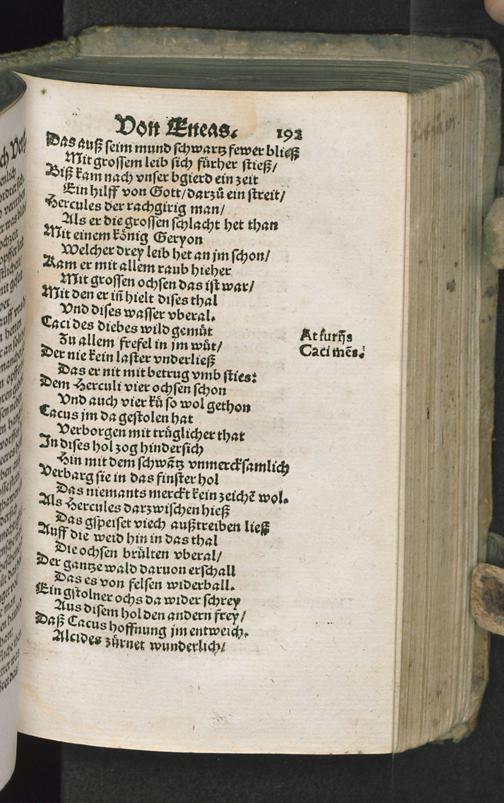 Von Eneas. 192
Das auß seim mund schwartz fewer bließ
Mit grossem leib sich fürher stieß/
Biß kam nach vnser bgierd ein zeit
Ein hilff von Gott/ darzů ein streit/
Hercules der rachgirig man/
Als er die grossen schlacht het than
Mit einem künig Geryon
Welcher drey leib het an jm schon/
Kam er mit allem raub hieher
Mit grossen ochsen das ist war/
Mit den er iñ hielt dises thal
Vnd dises wasser vberal.
Caci des diebes wild gemüt
Zu allem frefel in jm wüt/
Der nie kein laster vnderließ
Das er nit mit betrug vmb sties:
Dem Herculi vier ochsen schon
Vnd auch vier kü so wol gethon
Cacus jm da gestolen hat
Verborgen mit trüglicher that
In dises hol zog hindersich
Hin mit dem schwãtz vnmercksamlich
Verbarg sie in das finster hol
Das niemants merckt kein zeichẽ wol.
Als Hercules darzwischen hieß
Das gspeiset viech außtreiben ließ
Auff die weid hin in das thal
Die ochsen brülten vberal/
Der gantze wald daruon erschall
Das es von felsen widerball.
Ein gstolner ochs da wider schrey
Aus disem hol den andern frey/
Daß Cacus hoffnung jm entweich.
Alcides zürnet wunderlich/
At furijs
Caci mẽs.